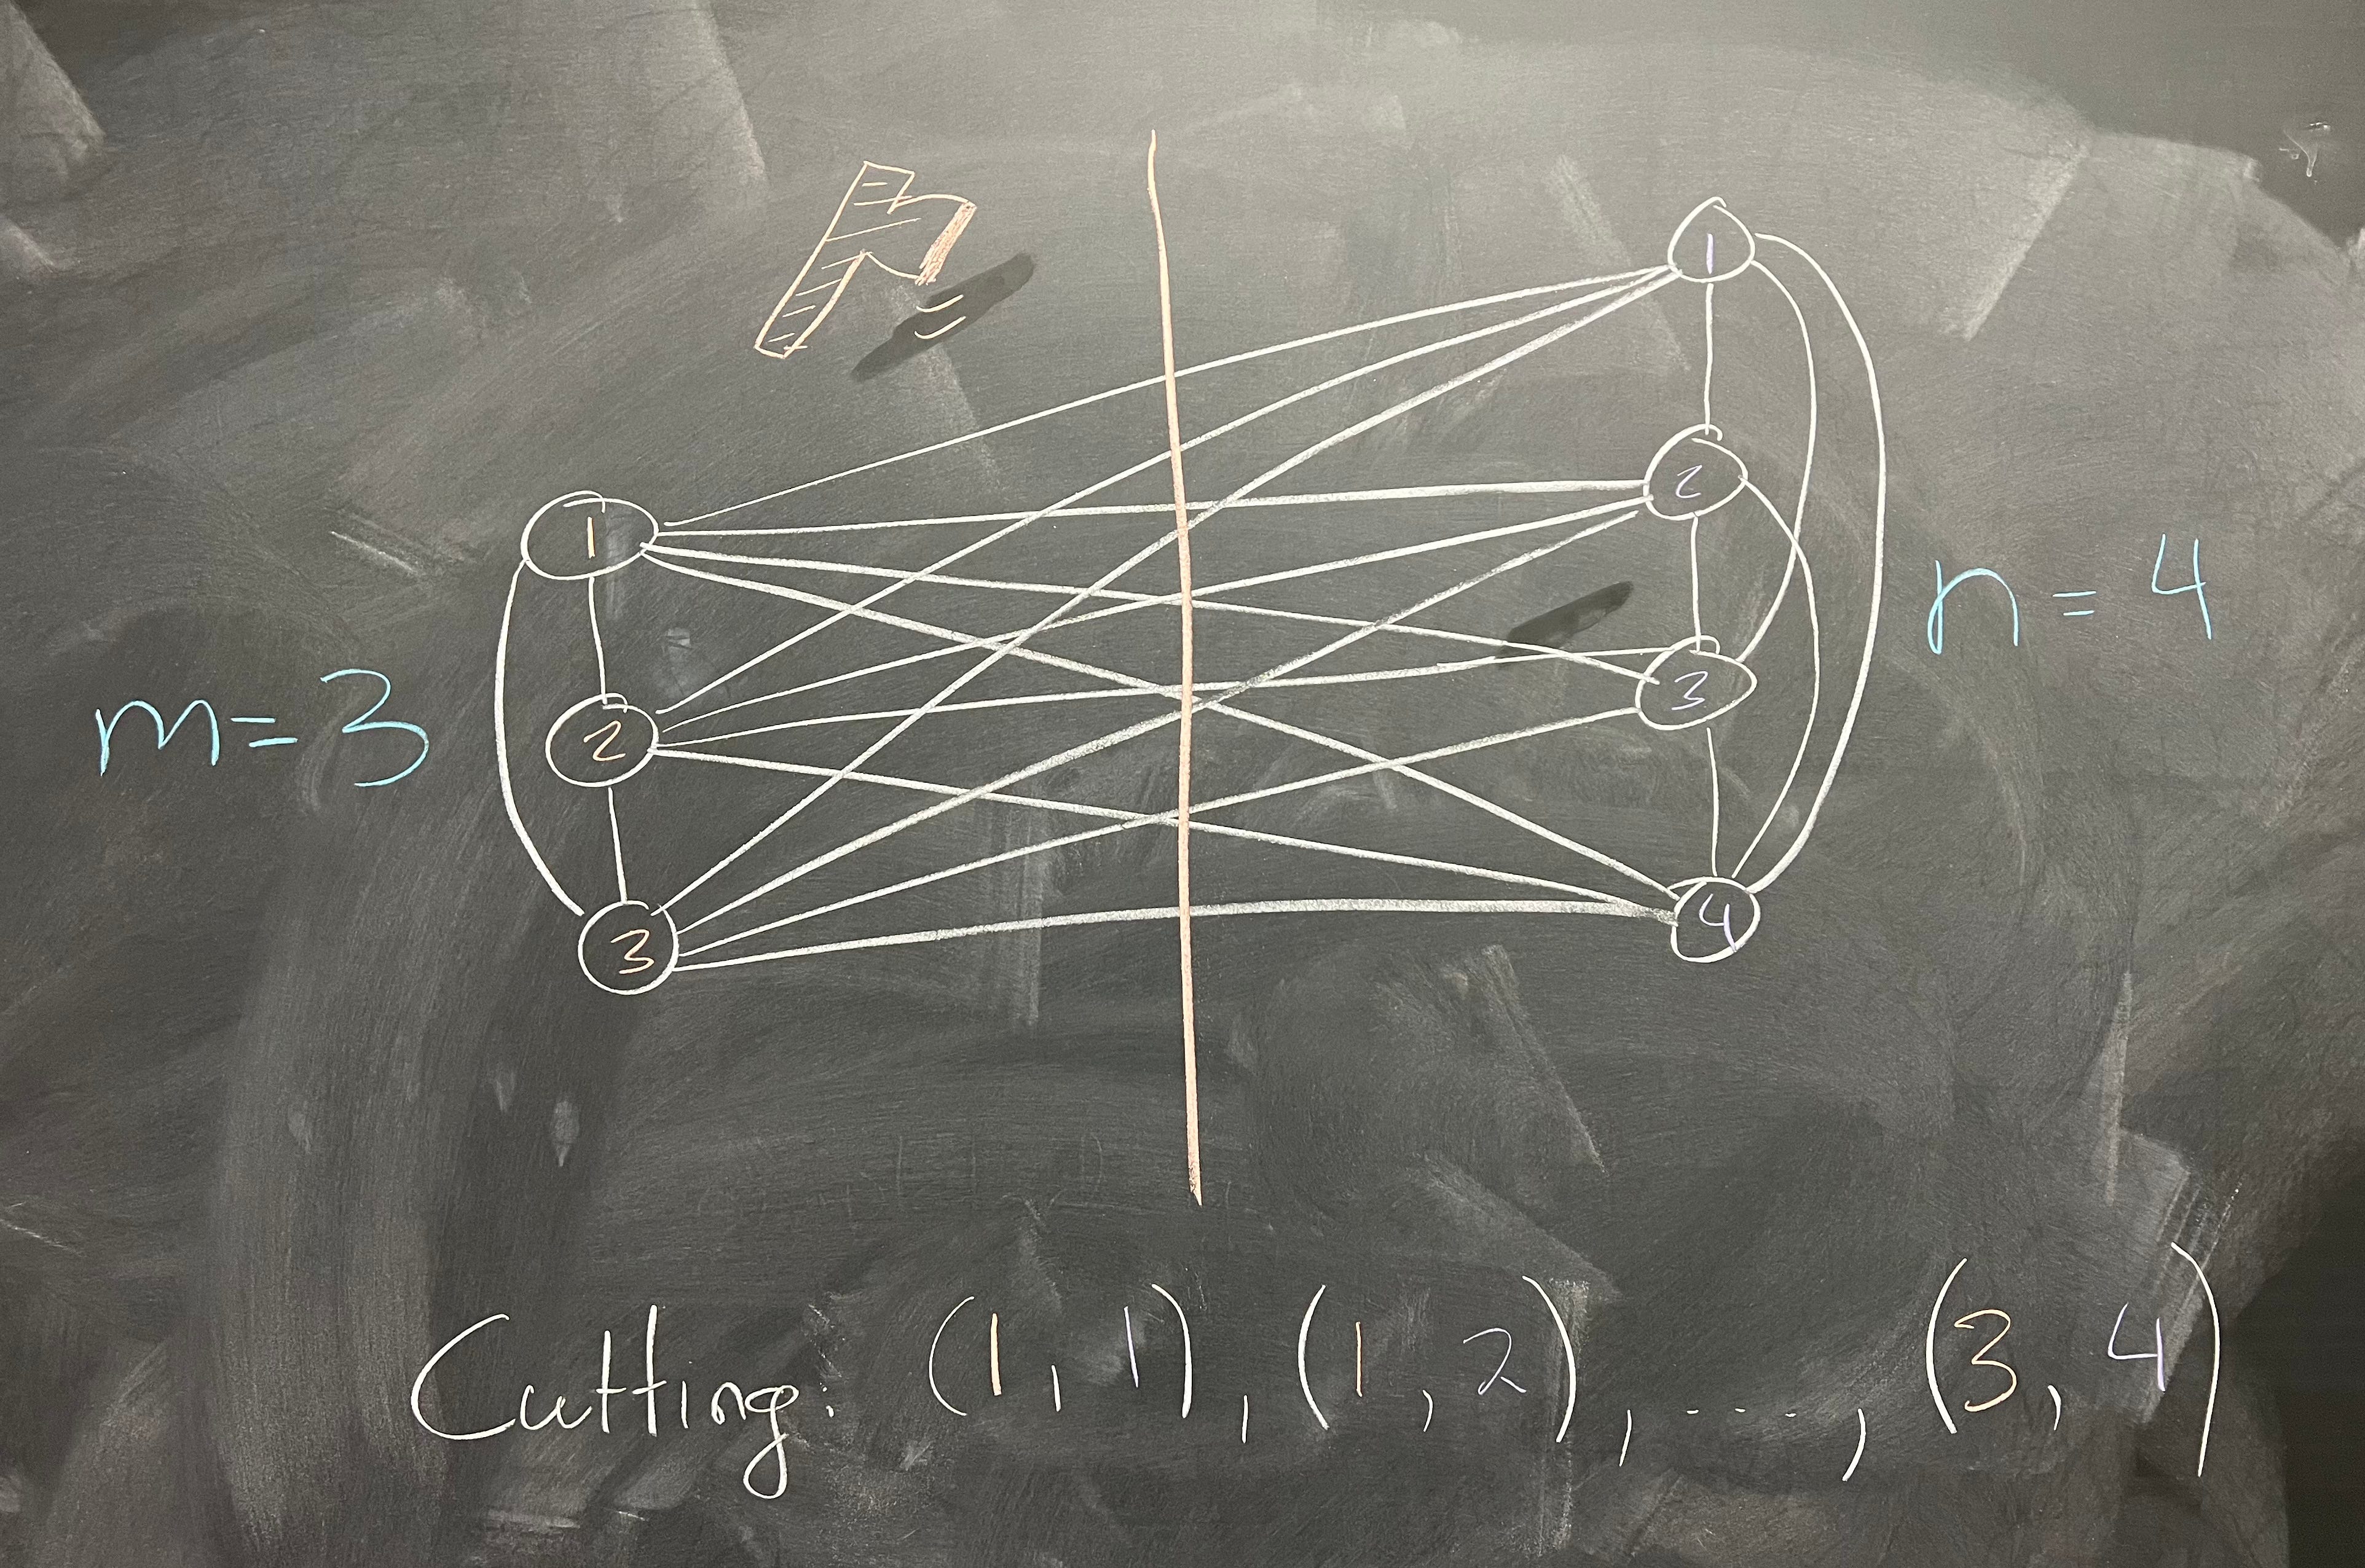 1
1
2
n=4
1
m=3
2
3
3
4
Cutting: (1,1), (1,2), ...., (3,4)